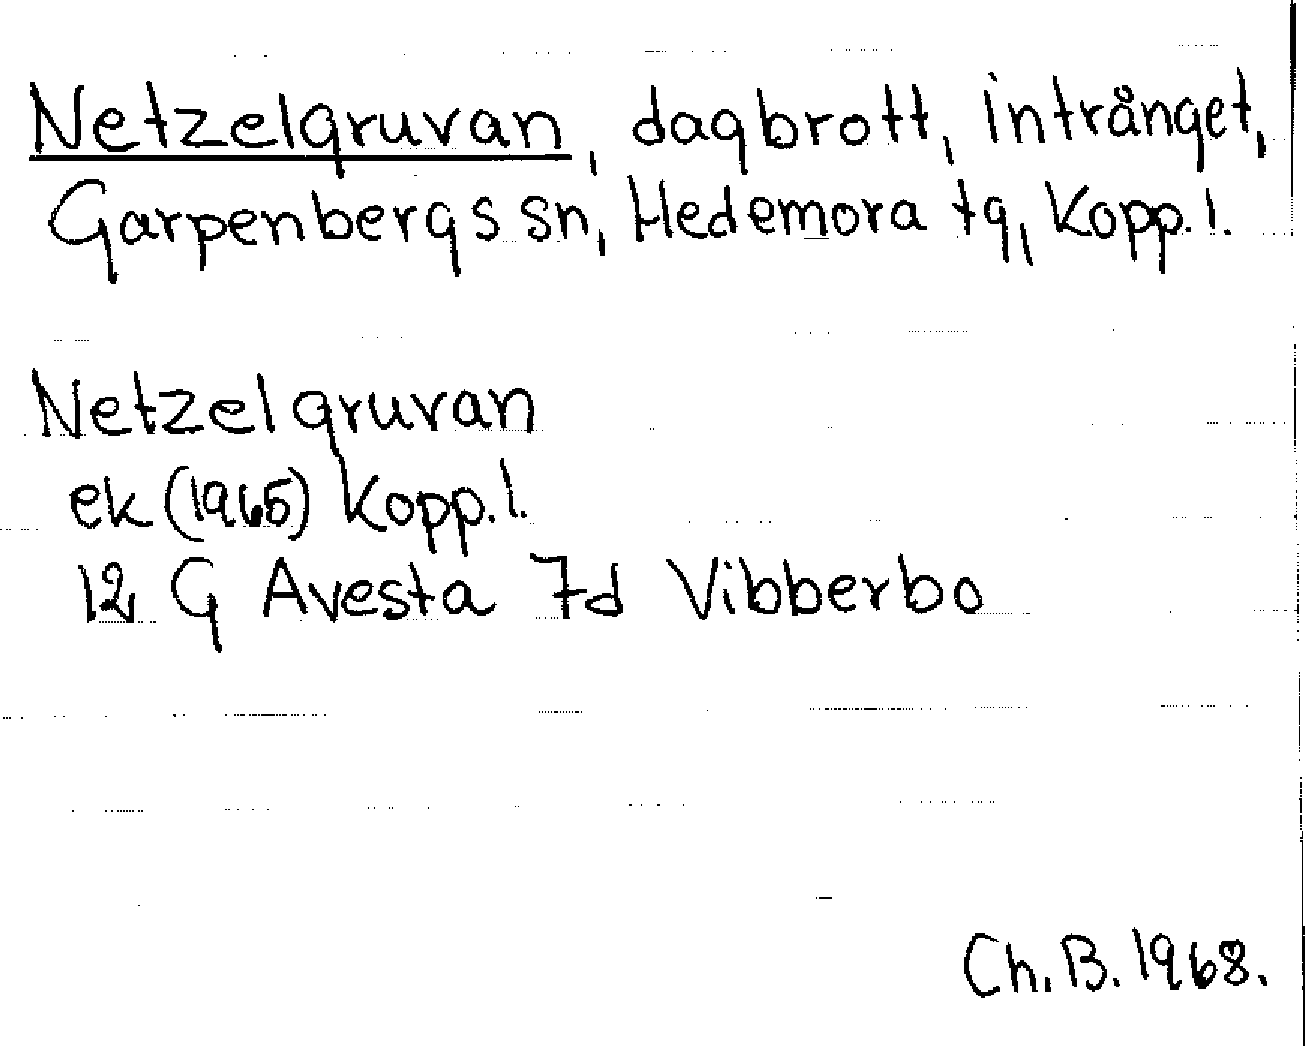 Netzelgruvan, dagbrott, intrånget,
Garpenbergs sn, Hedemora tg, Kopp. l.
Netzelgruvan
ek (1965) Kopp. l.
12 G Avesta 7d Vibberbo
Ch. B. 1968.